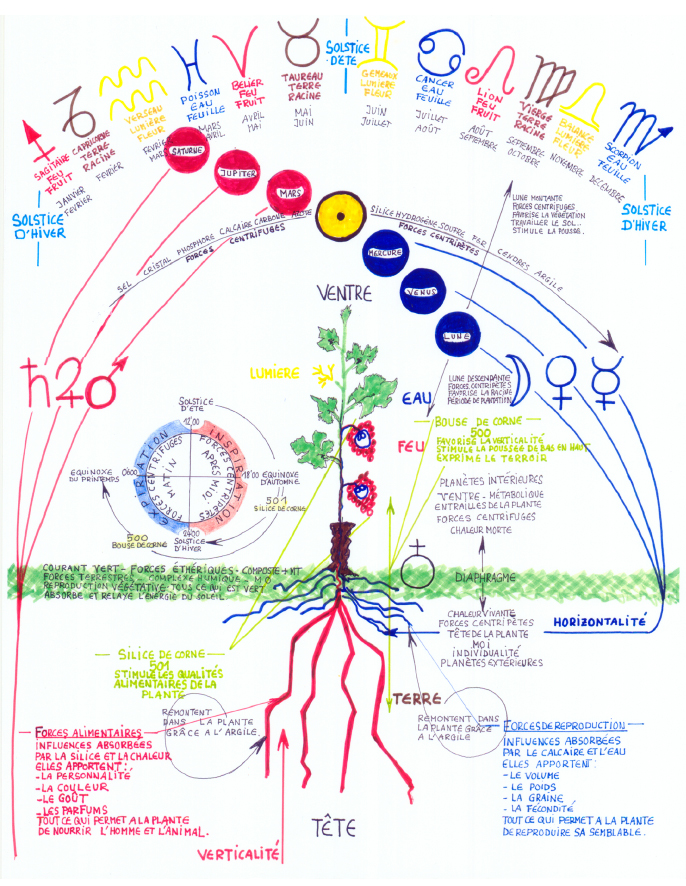 SAGITAIRE
FEU
FRUIT
JANVIER
FÉVRIER
CAPRICORNE
TERRE-
RACINE
FÉVRIER
VERSEAU
LUMIÈRE
FLEUR
FÉVRIER
MARS
POISSON
EAU
FEUILLE
MARS
AVRIL
BELIER
FEU
FRUIT
AVRIL
MAI
TAUREAU
TERRE
RACINE
MAI
JUIN
SOLSTICE
D'ÉTÉ
GEMEAUX
LUMIÈRE
FLEUR
JUIN
JUILLET
CANCER
EAU
FEUILLE
JUILLET
AOÛT
LION
FEU
FRUIT
AOÛT
SEPTEMBRE
VIERGE
TERRE
RACINE
SEPTEMBRE
OCTOBRE
BALANCE
LUMIÈRE
FLEUR
NOVEMBRE
SCORPION
EAU
FEUILLE
DÉCEMBRE
SOLSTICE
D'HIVER
SOLSTICE
D'HIVER
SATURNE
JUPITER
MARS
MERCURE
VENUS
LUNE
SEL CRISTAL PHOSPHORE CALCAIRE CARBONE
FORCES CENTRIFUGES
SILICE HYDROGÈNE SOUFRE FER CENDRES ARGILE
FORCES CENTRIPÈTES
LUNE MONTANTE
FORCES CENTRIFUGES
FAVORISE LA VÉGÉTATION
TRAVAILLER LE SOL.
STIMULE LA POUSSÉE.
VENTRE
LUMIÈRE
EAU
FEU
LUNE DESCENDANTE
FORCES CENTRIPÈTES
FAVORISE LA RACINE
PERIODE DE PLANTATION
BOUSE DE CORNE
500
FAVORISE LA VERTICALITÉ
STIMULE LA POUSSÉE DE BAS EN HAUT
EXPRIME LE TERROIR
SOLSTICE
D'ÉTÉ
12'00
EXPIRATION
FORCES CENTRIFUGES
MATIN
INSPIRATION
FORCES CENTRIPÈTES
APRÈS MIDI
EQUINOXE
DU PRINTEMPS
0600
18'00
EQUINOXE
D'AUTOMNE
501
SILICE DE CORNE
2400
SOLSTICE
D'HIVER
500
BOUSE DE CORNE
PLANÈTES INTÉRIEURES
VENTRE - MÉTABOLIQUE
ENTRAILLES DE LA PLANTE
FORCES CENTRIFUGES
CHALEUR MORTE
COURANT VERT - FORCES ÉTHÉRIQUES - COMPOSTE + MT
FORCES TERRESTRES - COMPLEXE HUMIQUE - MO
REPRODUCTION VÉGÉTATIVE - TOUS CE QUI EST VERT
ABSORBE ET RELAYE L'ÉNERGIE DU SOLEIL
DIAPHRAGME
CHALEUR VIVANTE
FORCES CENTRIPÈTES
TÊTE DE LA PLANTE
MOI
INDIVIDUALITÉ
PLANÈTES EXTÉRIEURES
HORIZONTALITÉ
SILICE DE CORNE
501
STIMULE LES QUALITÉS
ALIMENTAIRES DE LA
PLANTE
TERRE
REMONTENT
DANS LA PLANTE
GRÂCE A L'ARGILE.
REMONTENT DANS
LA PLANTE GRÂCE
A L'ARGILE
FORCES ALIMENTAIRES
INFLUENCES ABSORBÉES
PAR LA SILICE ET LA CHALEUR
ELLES APPORTENT:
-LA PERSONNALITÉ
-LA COULEUR
-LE GOÛT
-LES PARFUMS
TOUT CE QUI PERMET A LA PLANTE
DE NOURRIR L'HOMME ET L'ANIMAL.
FORCES DE REPRODUCTION
INFLUENCES ABSORBÉES
PAR LE CALCAIRE ET L'EAU
ELLES APPORTENT:
- LE VOLUME
- LE POIDS
- LA GRAINE
- LA FÉCONDITÉ
TOUT CE QUI PERMET A LA PLANTE
DE REPRODUIRE SA SEMBLABLE.
TÊTE
VERTICALITÉ